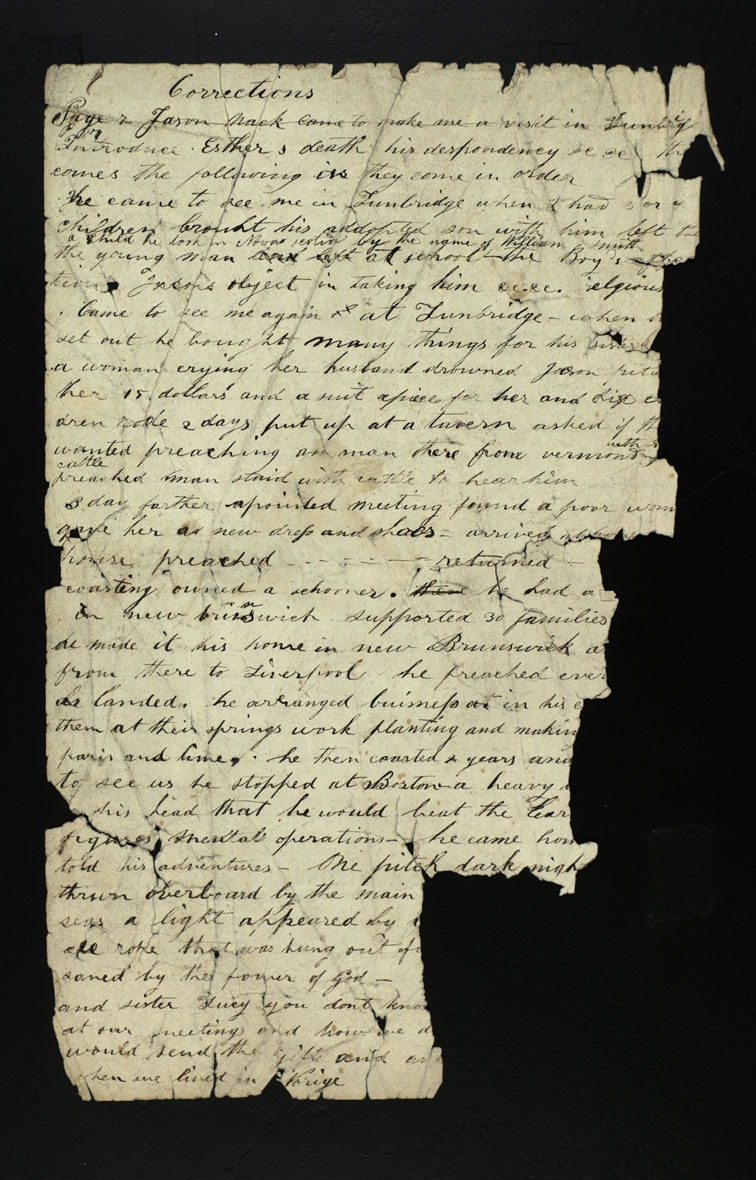 Corrections
Page 2 Jason Mack came to make me a visit in Tunbrig
for
Introduce Esther s death his despondency &c &c th
comes the following is they come in order
he came to see me in Tunbridge when I had 3 or 4
children brought his addopted son with him left
a child he took in Nova scotia by the name of William Smith
the young man and left at school the Boy s
tion Jasons object in taking him &c &c. relgious
. Came to see me again at Tunbridge - when
set out he bought many things for his sister
a woman crying her husband drowned Jason
her 15 dollars and a suit apiece for her and six
dren rode 2 days put up at a tavern asked if th
wanted preaching an man there from vermont
with
cattle
preached man staid with cattle to hear him
3 day farther apointed meeting found a poor wom
gave her a new dress and shoes - arrived
house preached - - - - - - - returned -
coasting owned a schooner. then he had a
in new brunswick supported 30 families
he made it his home in new Brunswick a
from there to Liverpool he preached ever
he landed. he arranged buisness at in his
them at their springs work planting and making
paris and lime. he then coasted 2 years and
to see us he stopped at Boston a heavy
his head that he would beat the Lear
figures mental operations - he came hom
told his adventures - One pitch dark nigh
thrun overboard by the main
seas a light appeared by
rope that was hung out of
saved by the power of God -
and sister Lucy you dont kno
at our meetings and how we d
would send the gift and
when we lived in